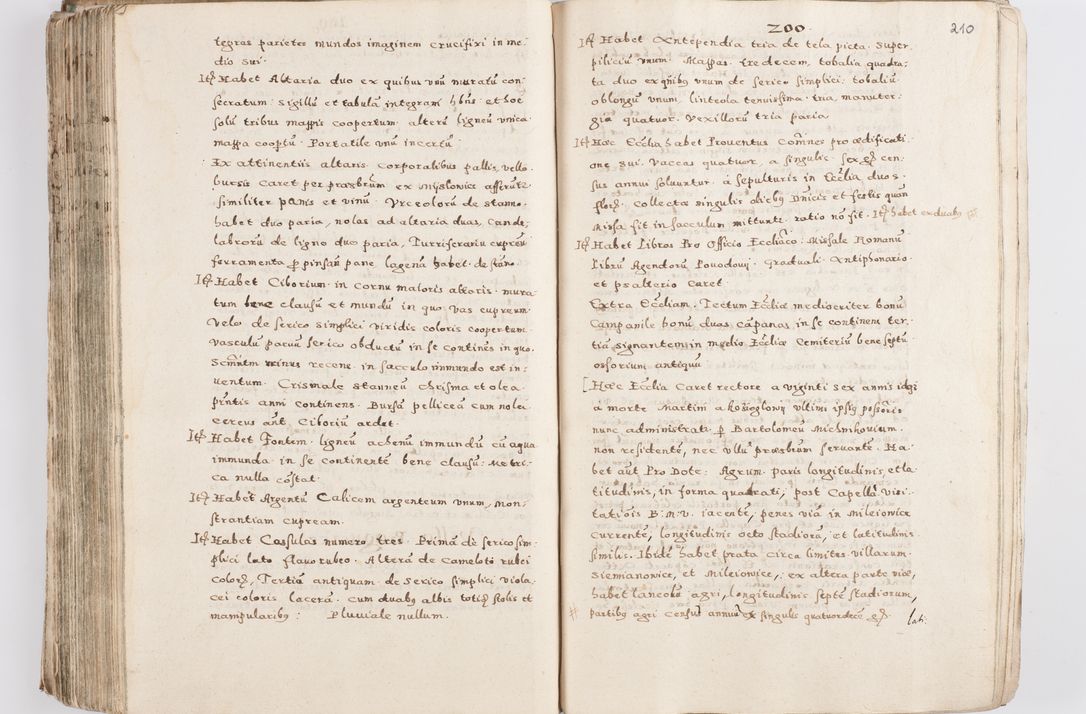 tegras parietes mundos imaginem Crucifixi in me
dio sui.
Itē Habet Altaria duo ex quibus unū muratū con
secratum sigillū et tabulā integram hb̄ns et hoc
solū tribus mappis coopertum alterū ligneū unica
mappa cooptū. Portatile unū incertū.
Ex attinentiis altaris corporalibus pallis, vello
bursis caret per præsb̄rum ex Myslowice afferūtr
similiter panis et vinū. Vrceolorū de stanno
habet duo paria, nolas ad altaria duas, Cande,
labrorū de ligno duo paria, Turriferariū cupreū
ferramenta p pinsan pane lagenā habet de stān
Itē Habet Ciborium in cornu maioris altaris mura
tum bene clausū et mundū in quo vas cupreum
Velo de serico simplici viridis coloris coopertum.
Vasculū parvū serico obductū in se contines in quo
Scm̄tm minus recens in sacculo immundo est in:
uentum. Crismale stanneū Chrisma et olea
pn̄tis anni continens. Bursā pelliceā cum nolei
cereus ant̄ Ciboriū ardet.
Itē Habet Fontem ligneū achenū immundū cū aqua
immunda in se continentē bene clausū: Metri,
ca nulla cōstat.
Itē Habet Argentū Calicem argenteum unum, Mon
strantiam cupream.
Itē Habet Cassulas numero tres. Primā de serico sim
plici lato flavo rubeo. Alterā de Cameloti rubei
colors, Tertiā antiquam de serico simplici viola,
cei coloris lacerā. Cum duabs albis totis stolis et
manipularibs: Pluuiale nullum.
200.
210
Itē Habet Antependia tria de tela picta. Super
piliciū unum. Mappas tredecem, tobalia quadra,
ta duo ex quibs unum de serico simplici: tobaliū
oblongū unum, linteola tenuissima tria, manuter
gia quatuor. Vexillorū tria paria
Itē Hæc Eccl̄ia habet Prouentus Om̄nes pro ædificati
one sui. Vaccas quatuor, a singulis sex gr cen
sus annui soluuntur. a sepulturis in Eccl̄ia duos
flors. Collecta singulis diebs Dn̄icis et festis quan
Missa fit in sacculum mittunt. ratio nō fit. Itē habet ex duabs
Itē Habet Libros Pro Officio Eccl̄iaco: Missale Romanū
Librū Agendorū Povodowij Graduali Antiphonario
et psalterio caret.
Extra Eccl̄iam. Tectum Eccl̄iæ mediocriter bonū
Campanile bonū duas cāpanas in se continens ter,
tiā signantem in medio Eccl̄iæ Cemiteriū bene septū
osforium antiquū
[Hæc Eccl̄ia Caret rectore a viginti sex annis idqi
a morte Martini a Kozioglowij ultimi ipsis possoris
nunc administrat p Bartolomeū Michnikovium.
non residentē, nec ullū præsbrum seruante. Ha
bet aūt Pro Dote: Agrum. paris longitudinis et la
titudinis, in forma quadrati, post Capellā visi
tatiōis B: M: V. iacente, penes viā in Mileiowice
currente, longitudinis octo stadiorū, et latitudinis
similis. Ibidē habet prata circa limites villarum
Siemianowice, et Mileiowice,: ex altera parte viæ,
habet laneolā agri, longitudinis septē stadiorum,
partibs agri censu annui ex singulis quatuordecē gr.
lati: